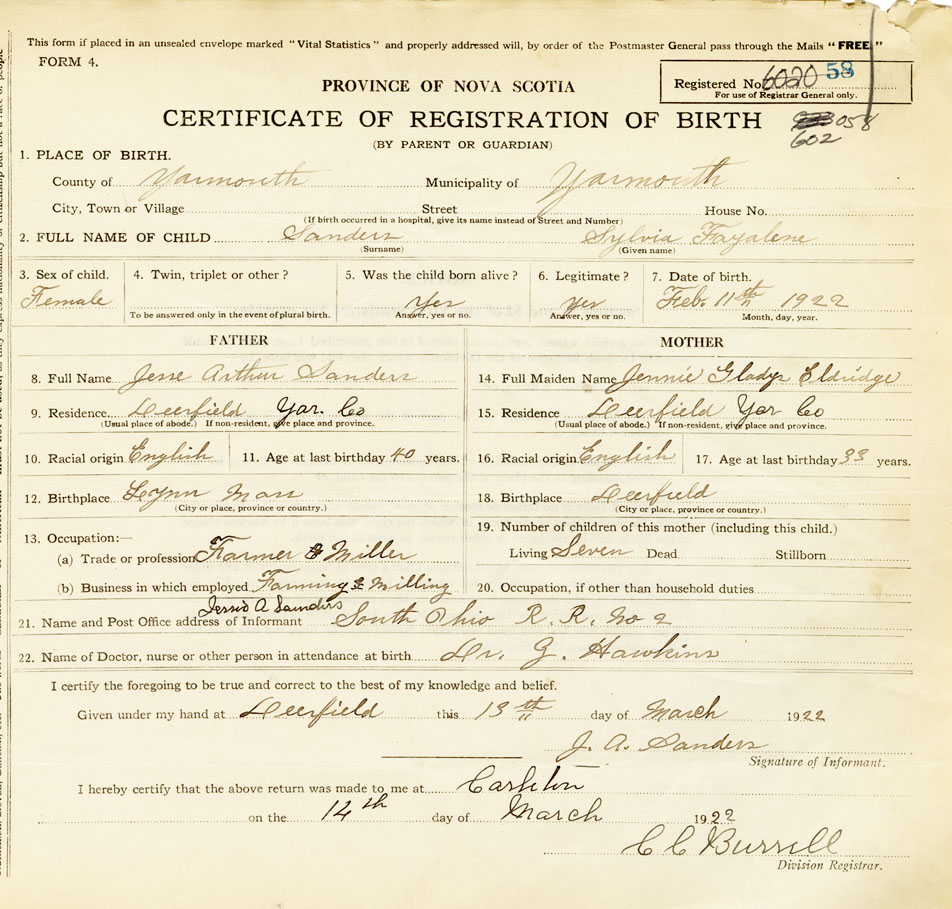 This form if placed in an unsealed envelope marked "Vital Statistics" and properly addressed will, by order of the Postmaster General pass through the Mails "FREE."
FORM 4.
Registered No. 6020 58
For use of Registrar General only.
PROVINCE OF NOVA SCOTIA
CERTIFICATE OF REGISTRATION OF BIRTH
058
602
(BY PARENT OR GUARDIAN)
1. PLACE OF BIRTH.
County of Yarmouth Municipality of Yarmouth
City, Town or Village Street House No.
(If birth occurred in a hospital, give its name instead of Street and Number)
2. FULL NAME OF CHILD Sanders Sylvia Fayalene
(Surname) (Given name)
3. Sex of child. 4. Twin, triplet or other? 5. Was the child born alive? 6. Legitimate? 7. Date of birth.
Female Yes yes Feb. 11th 1922
To be answered only in the event of plural birth. Answer, yes or no. Answer, yes or no. Month, day, year.
FATHER MOTHER
8. Full Name Jesse Arthur Sanders 14. Full Maiden Name Jennie Gladys Eldridge
9. Residence Deerfield Yar. Co 15. Residence Deerfield Yar Co
(Usual place of abode.) If non-resident, give place and province. (Usual place of abode.) If non-resident, give place and province.
10. Racial origin English 11. Age at last birthday 40 years. 16. Racial origin English 17. Age at last birthday 33 years.
12. Birthplace Lynn Mass 18. Birthplace Deerfield
(City or place, province or country.) (City or place, province or country.)
13. Occupation:— 19. Number of children of this mother (including this child.)
(a) Trade or profession Farmer & Miller Living Seven Dead Stillborn
(b) Business in which employed Farming & Milling 20. Occupation, if other than household duties
Jessie A Saunders
21. Name and Post Office address of Informant South Ohio R. R. No 2
22. Name of Doctor, nurse or other person in attendance at birth Dr. G. Hawkins
I certify the foregoing to be true and correct to the best of my knowledge and belief.
Given under my hand at Deerfield this 13th day of March 1922
J. A. Sanders
Signature of Informant.
I hereby certify that the above return was made to me at Carleton
on the 14th day of March 1922
C C Burrell
Division Registrar.